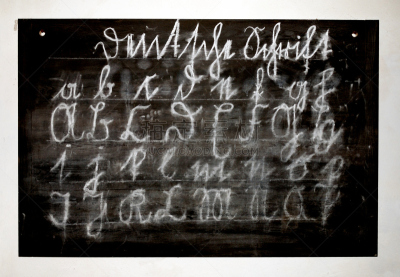 Deutsche Schrift
a b c d e f g
A B C D E F G
i j k l m n o p
I J K L M N O P